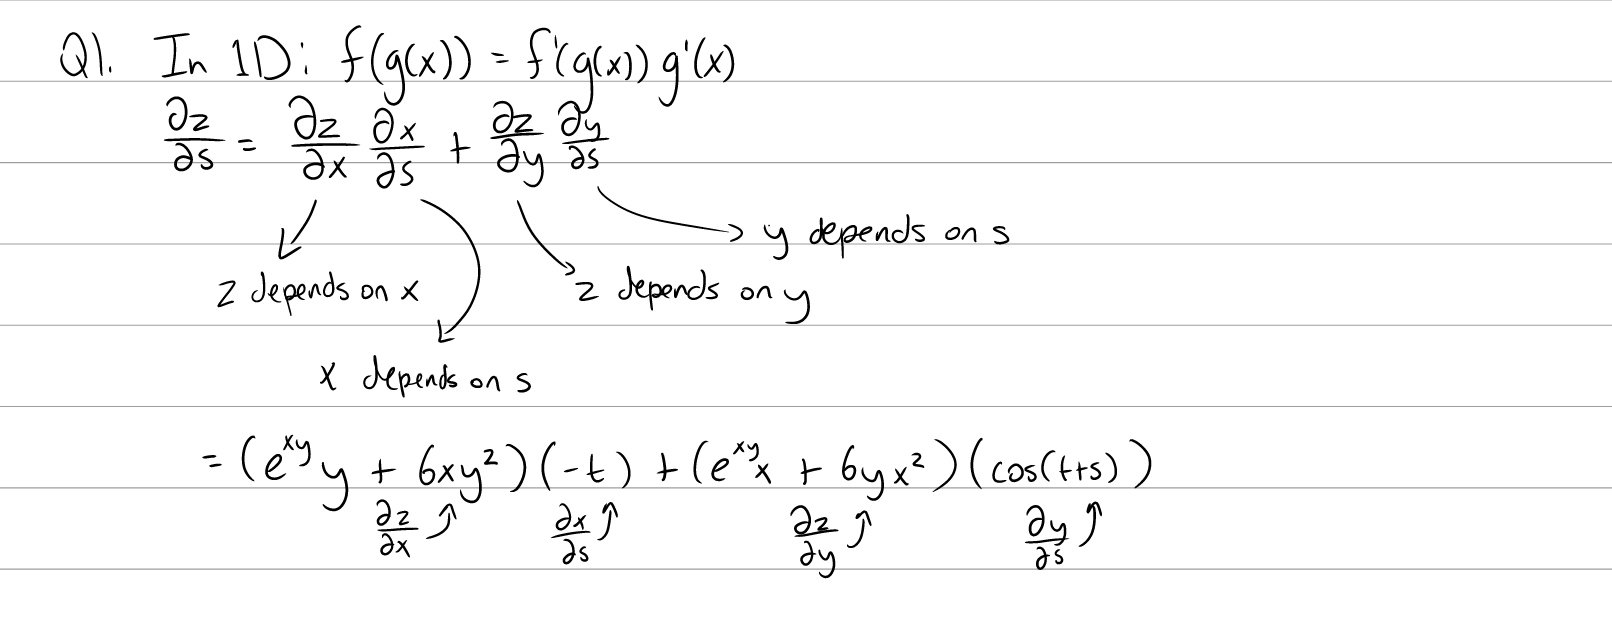 Q1. In 1D: f(g(x)) = f'(g(x)) g'(x)
∂z/∂s = ∂z/∂x ∂x/∂s + ∂z/∂y ∂y/∂s
→ y depends on s
z depends on x
z depends on y
x depends on s
= (e^{xy} y + 6xy²)(-t) + (e^{xy} x + 6yx²)(cos(t+s))
∂z/∂x ↑ ∂x/∂s ↑ ∂z/∂y ↑ ∂y/∂s ↑